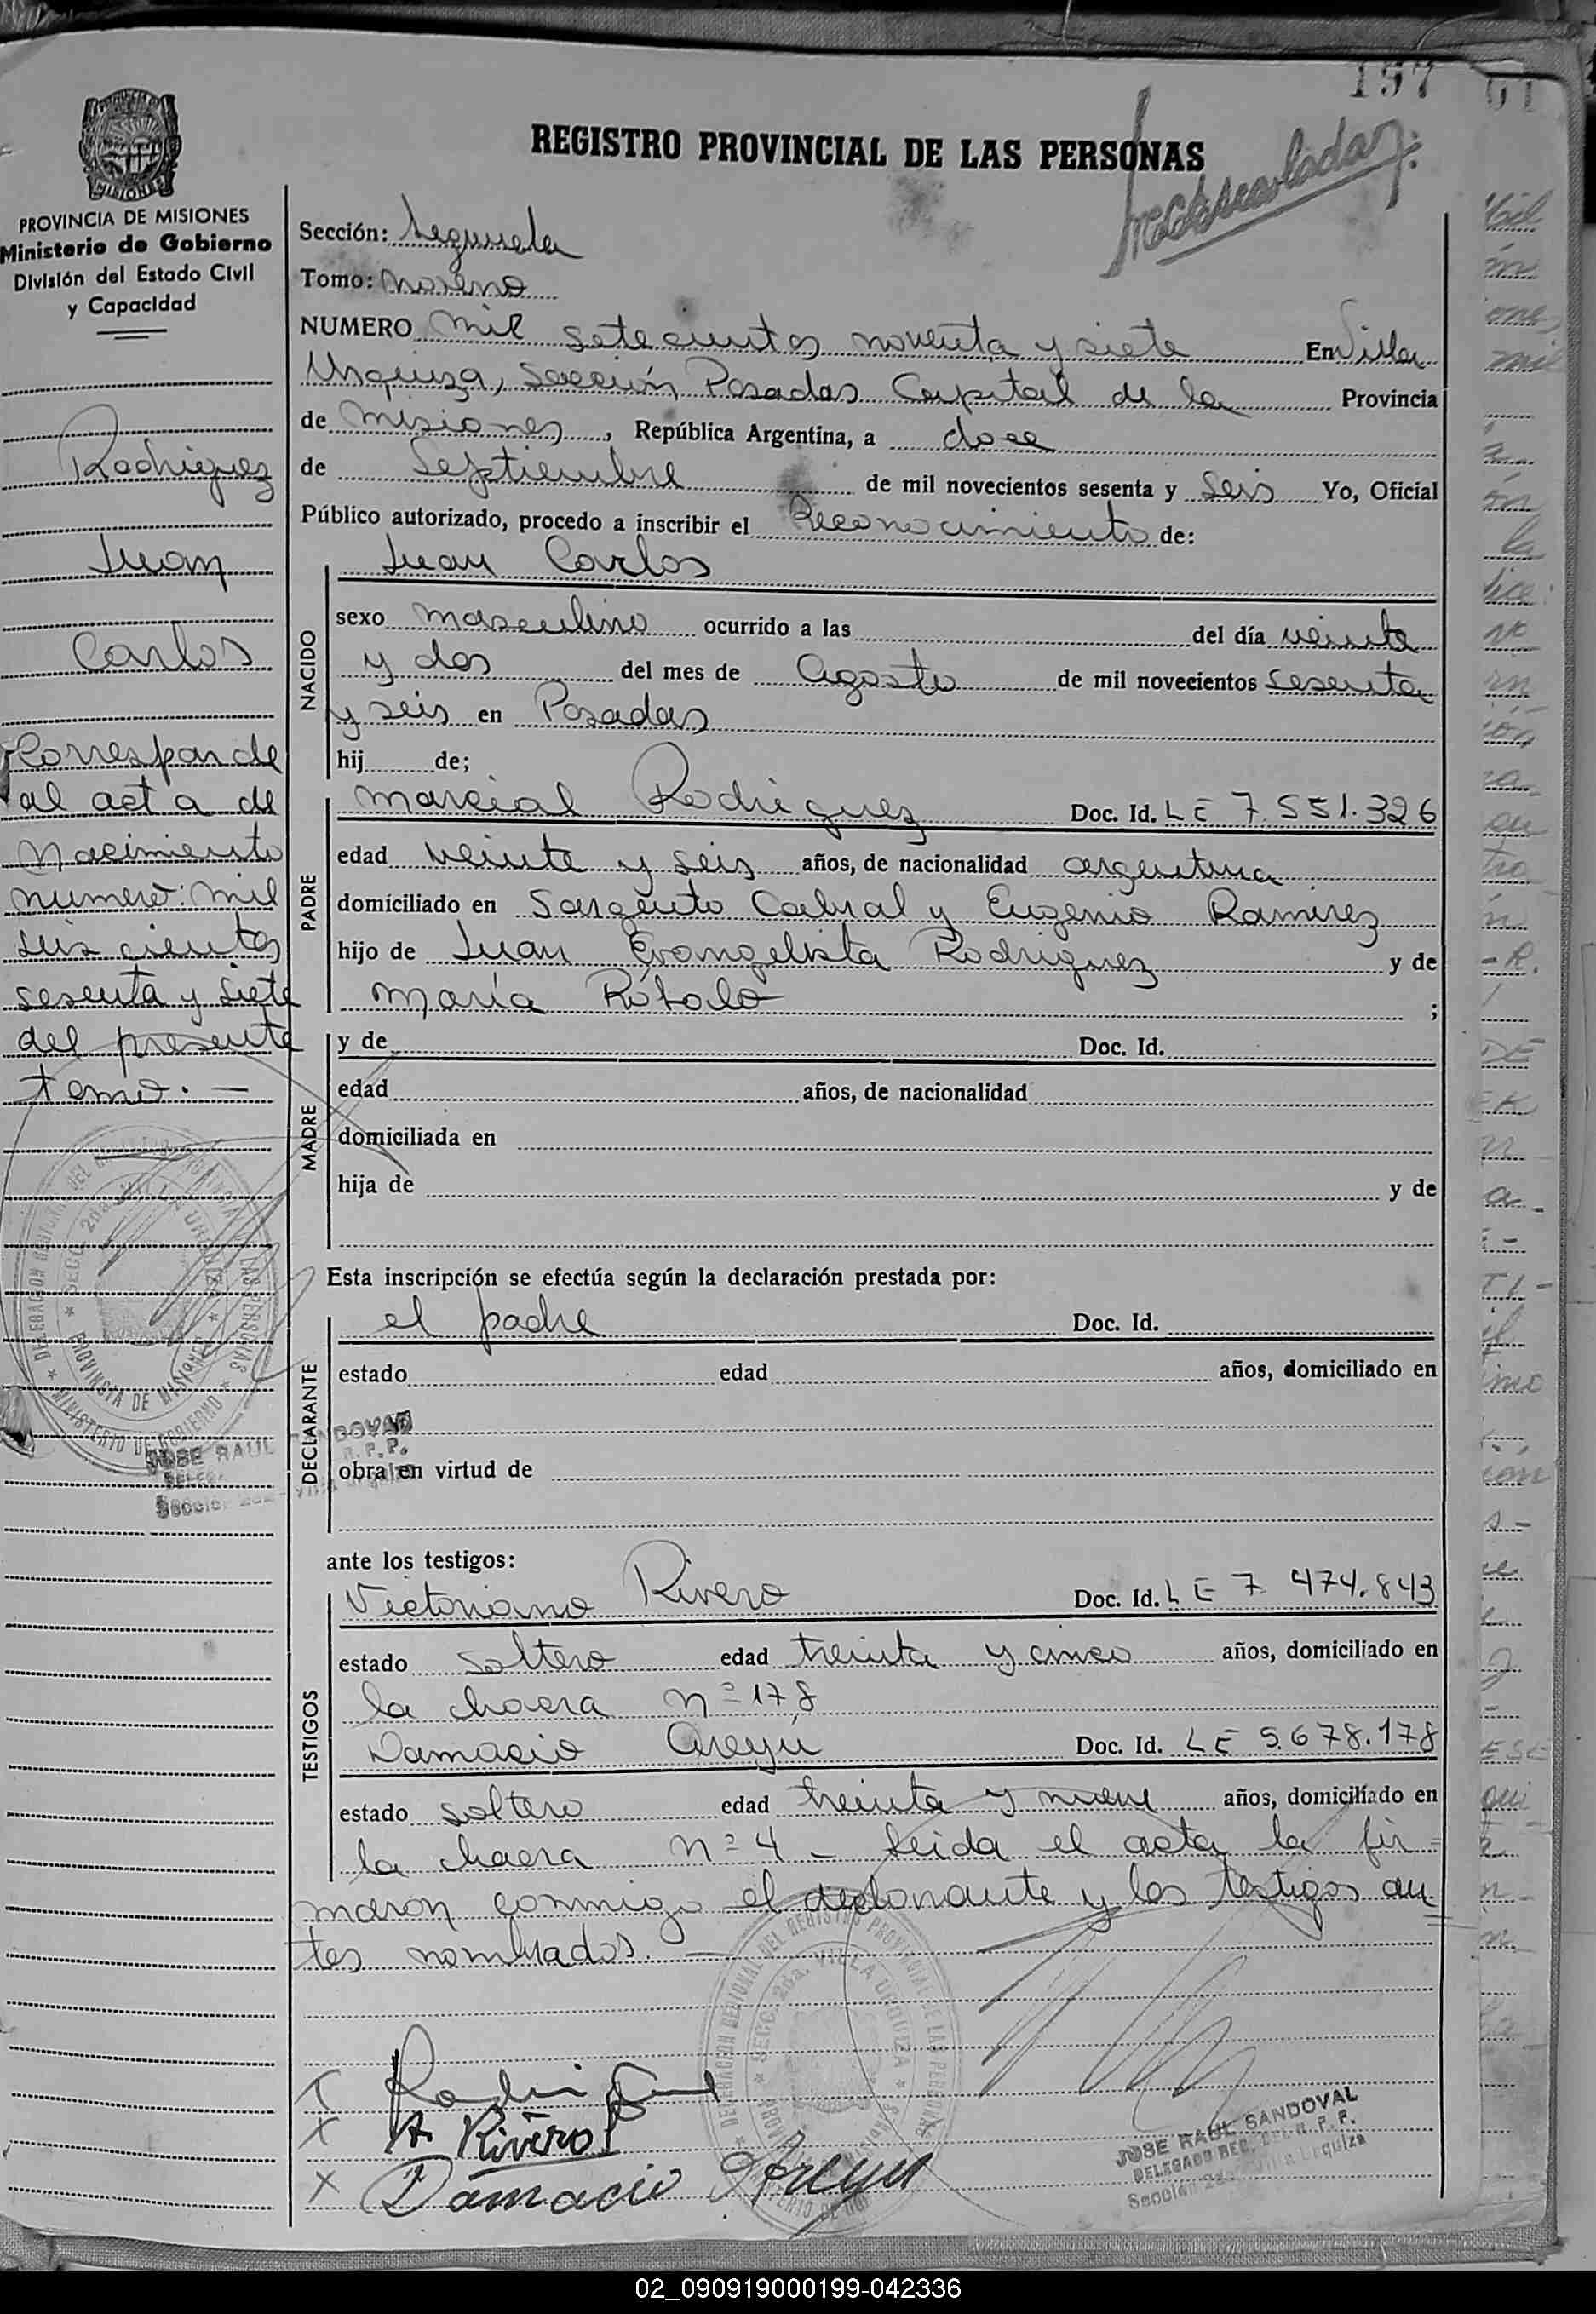 197
REGISTRO PROVINCIAL DE LAS PERSONAS
PROVINCIA DE MISIONES
Ministerio de Gobierno
División del Estado Civil
y Capacidad
Rodriguez
Juan
Carlos
Corresponde
al acta de
Nacimiento
numero: mil
seis cientos
sesenta y siete
del presente
tomo. —
Sección: Segunda
Tomo: Noveno
NUMERO mil setecientos noventa y siete En Villa
Urquiza, Sección Posadas Capital de la Provincia
de Misiones, República Argentina, a doce
de Septiembre de mil novecientos sesenta y seis Yo, Oficial
Público autorizado, procedo a inscribir el Reconocimiento de:
Juan Carlos
NACIDO
sexo masculino ocurrido a las del día veinte
y dos del mes de Agosto de mil novecientos sesenta
y seis en Posadas
hij de;
PADRE
Marcial Rodriguez Doc. Id. LE 7.551.326
edad veinte y seis años, de nacionalidad argentina
domiciliado en Sargento Cabral y Eugenio Ramirez
hijo de Juan Evangelista Rodriguez y de
María Rótolo ;
MADRE
y de Doc. Id.
edad años, de nacionalidad
domiciliada en
hija de y de
Esta inscripción se efectúa según la declaración prestada por:
DECLARANTE
el padre Doc. Id.
estado edad años, domiciliado en
obra en virtud de
ante los testigos:
TESTIGOS
Victoriano Rivero Doc. Id. LE 7.474.843
estado soltero edad treinta y cinco años, domiciliado en
la chacra nº 178
Damacio Areyú Doc. Id. LE 5.678.178
estado soltero edad treinta y nueve años, domiciliado en
la chacra nº 4 - Leida el acta la fir=
maron conmigo el declarante y los testigos an=
tes nombrados. —
DELEGACION REGIONAL DEL REGISTRO PROVINCIAL DE LAS PERSONAS
SECC. 2da. VILLA URQUIZA
Rivero
Damacio Areyu
JOSE RAUL SANDOVAL
DELEGADO REG. DEL R. P. P.
Sección 2da. Villa Urquiza
02_090919000199-042336